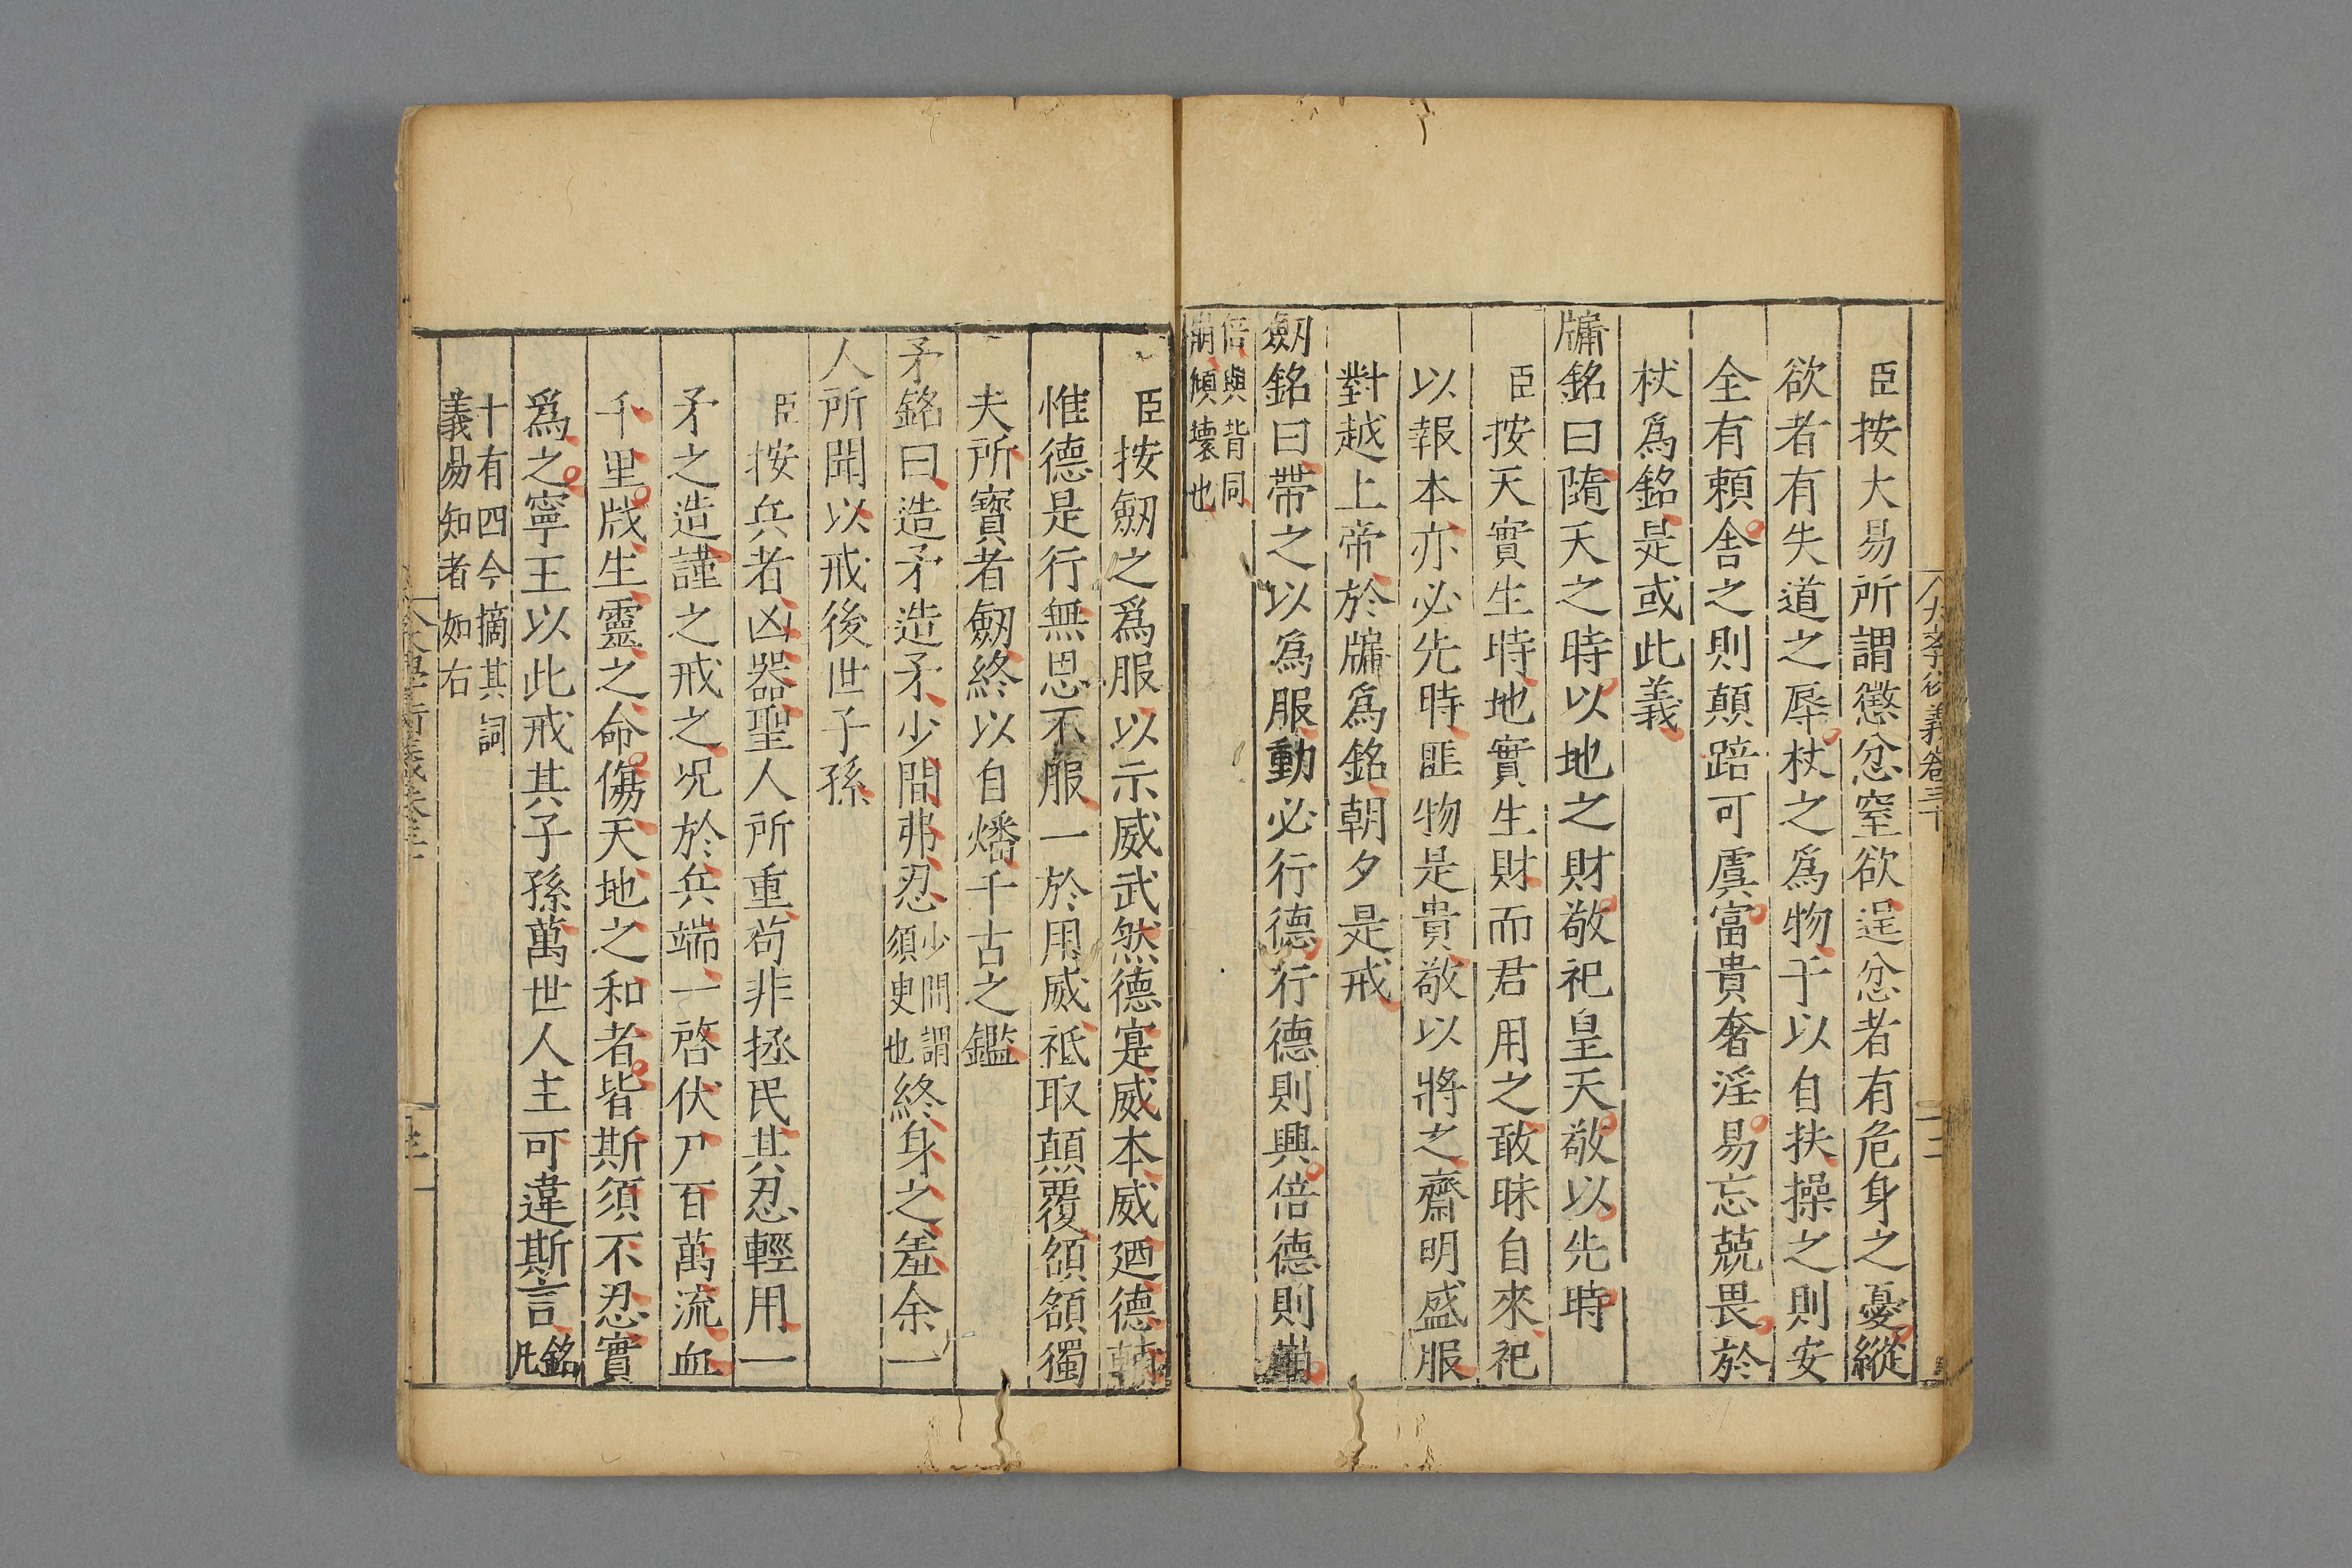 臣按大易所謂懲忿窒欲逞忿者有危身之憂縱
欲者有失道之辱杖之爲物于以自扶操之則安
全有賴舍之則顛踣可虞富貴奢淫易忘兢畏於
杖爲銘是或此義
牖銘曰隨天之時以地之財敬祀皇天敬以先時
臣按天實生時地實生財而君用之敢昧自來祀
以報本亦必先時匪物是貴敬以將之齋明盛服
對越上帝於牖爲銘朝夕是戒
劒銘曰帶之以爲服動必行德行德則興倍德則崩
倍與背同
崩傾壞也
臣按劒之爲服以示威武然德寔威本威廼德輔
惟德是行無思不服一於用威祗取顛覆頟頟獨
夫所寶者劒終以自燔千古之鑑
矛銘曰造矛造矛少間弗忍少間謂須臾也終身之羞余一
人所聞以戒後世子孫
臣按兵者凶器聖人所重苟非拯民其忍輕用一
矛之造謹之戒之况於兵端一啓伏尸百萬流血
千里戕生靈之命傷天地之和者皆斯須不忍實
爲之寧王以此戒其子孫萬世人主可違斯言銘凡
十有四今摘其詞
義易知者如右